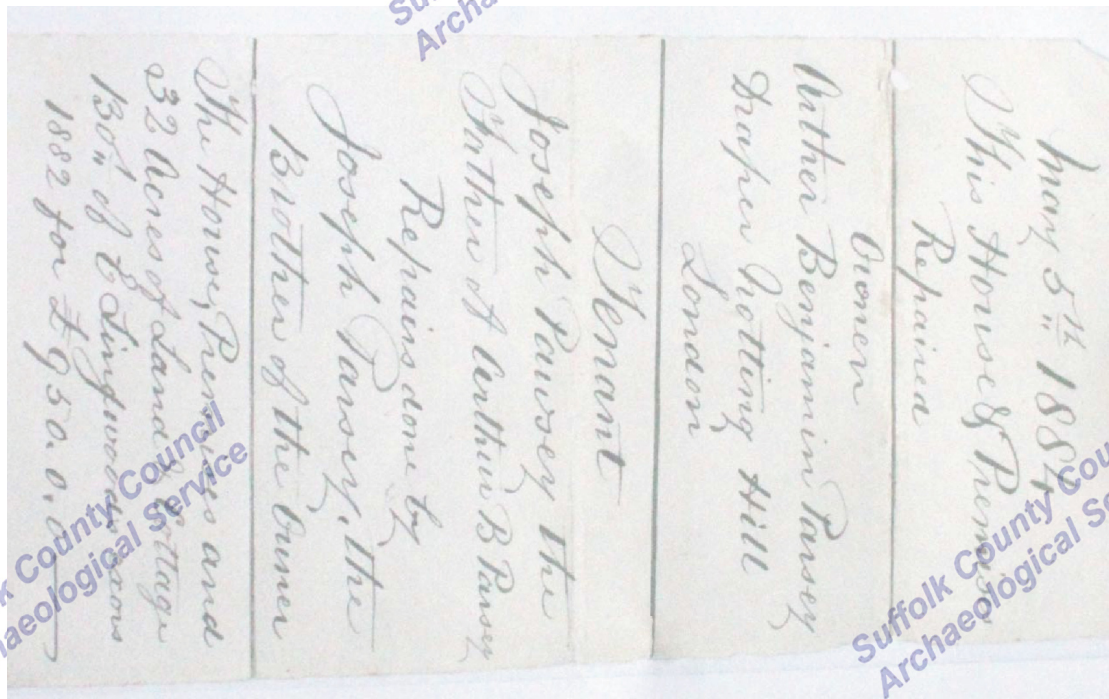 May 5th 1884
This House & Premises
Repaired
Owner
Arther Benjamin Parsey
Draper Notting Hill
London
Tenant
Joseph Pawsey the
Father of Arthur B Parsey
Repairs done by
Joseph Parsey, the
Brother of the Owner
The House, Premises and
32 Acres of Land & Cottage
Bot of
1882 for £950.0.0
Suffolk County Council
Archaeological Service